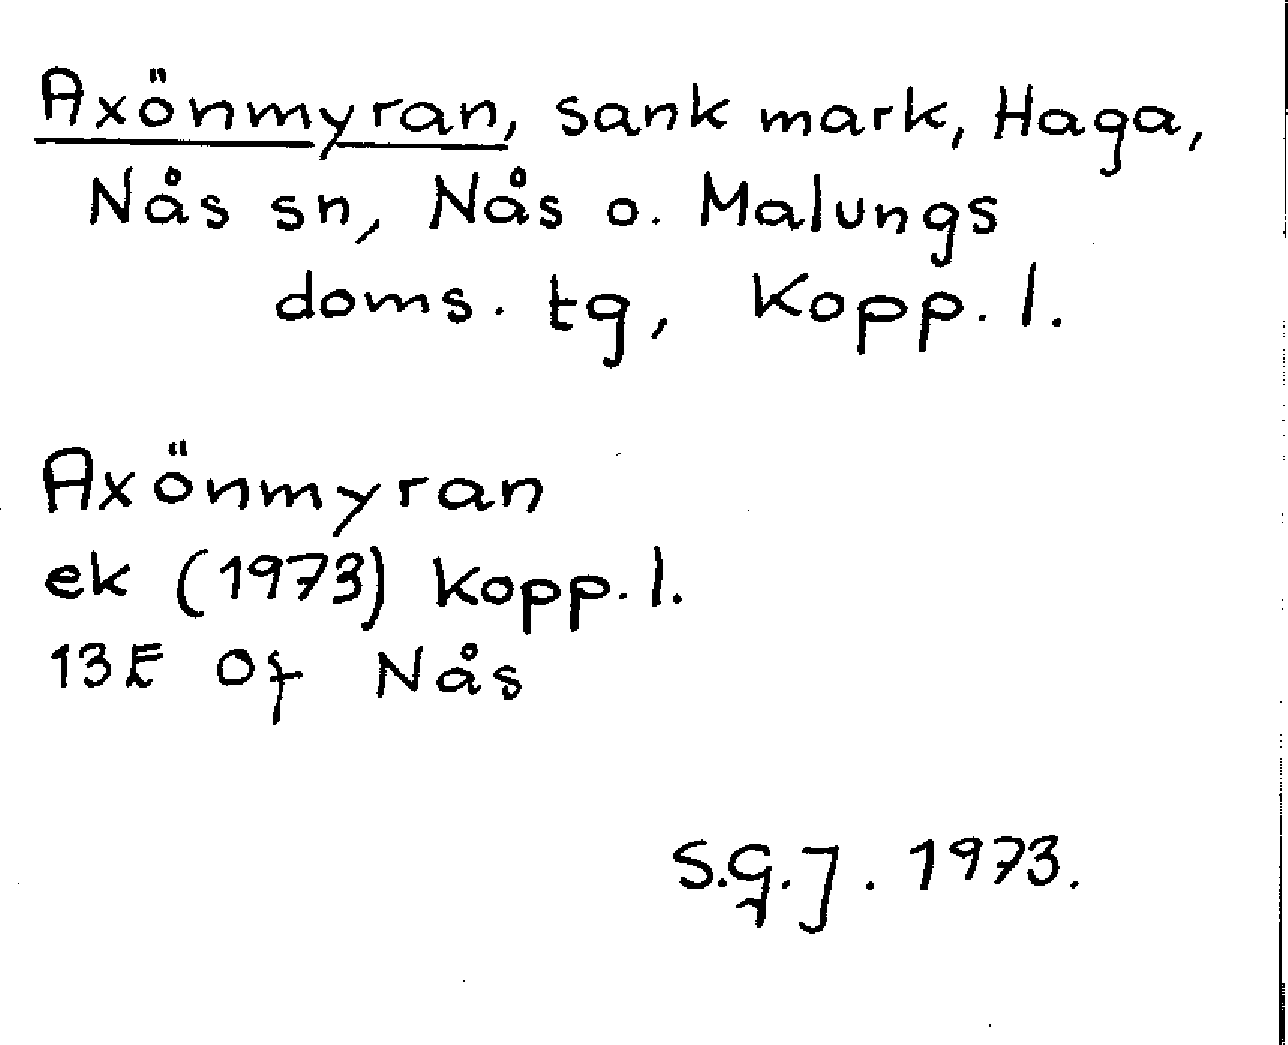 Axönmyran, sank mark, Haga,
Nås sn, Nås o. Malungs
doms. tg, Kopp. l.
Axönmyran
ek (1973) Kopp. l.
13E 0f Nås
S.G.J. 1973.